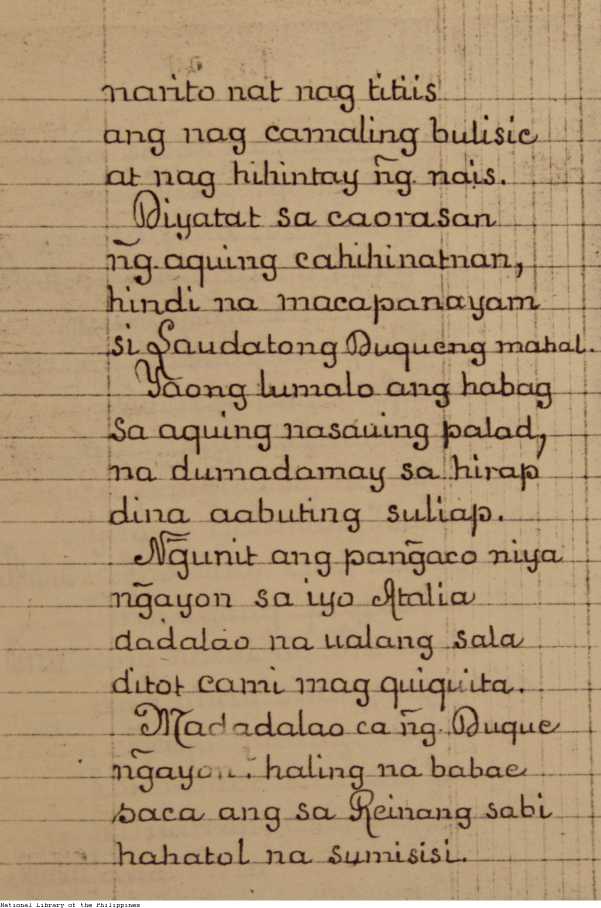 narito nat nag titiis
ang nag camaling bulisic
at nag hihintay n͠g. nais.
Diyatat sa caorasan
n͠g. aquing cahihinatnan,
hindi na macapanayam
si Laudatong Duqueng mahal.
Yaong lumalo ang habag
sa aquing nasauing palad,
na dumadamay sa hirap
dina aabuting suliap.
N͠gunit ang pang͠aco niya
n͠gayon sa iyo Atalia
dadalao na ualang sala
ditot cami mag quiquita.
Madadalao ca n͠g. Duque
n͠gayon haling na babae
saca ang sa Reinang sabi
hahatol na sumisisi.
National Library of the Philippines